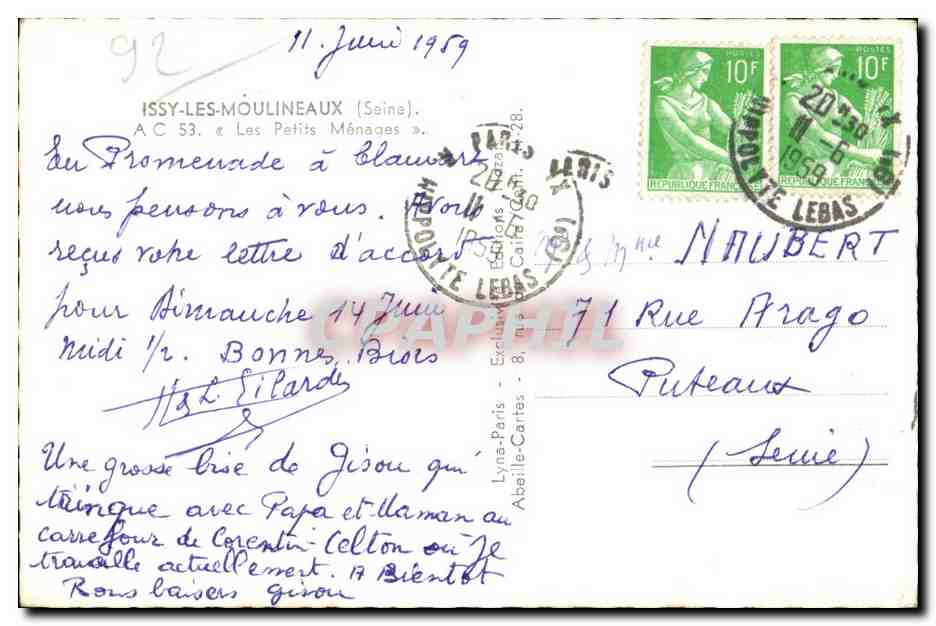 92
11 Juin 1959
ISSY-LES-MOULINEAUX (Seine).
A C 53. « Les Petits Ménages ».
En Promenade à Clamart
nous pensons à vous. Avons
reçus votre lettre d'accord
pour Dimanche 14 Juin
Midi 1/2. Bonnes Bises
Une grosse bise de Gisou qui
trinque avec Papa et Maman au
carrefour de Corentin-Celton où Je
travaille actuellement. A Bientôt
Bons baisers Gisou
Lyna-Paris - Exclusivité Editions
Abeille-Cartes - 8, rue du Caire Cent. -28.
POSTES
10F
REPUBLIQUE FRANCAISE
POSTES
10F
REPUBLIQUE FRANC
PARIS X
20H30
11-6
1959
HIPPOLYTE LEBAS (9e)
PARIS X
20H30
11-6
1959
HIPPOLYTE LEBAS (9e)
Mme NAUBERT
71 Rue Arago
Puteaux
(Seine)
CPAPHIL